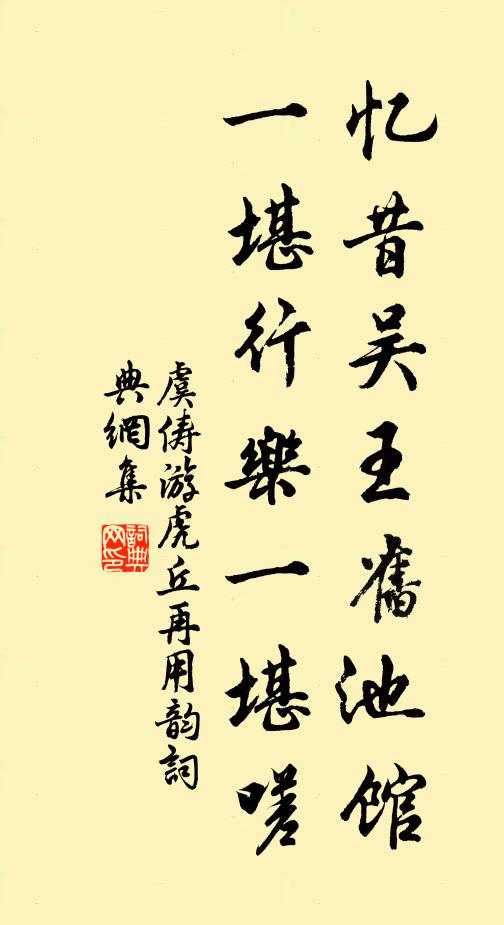 忆昔吴王舊池馆
一堪行樂一堪嗟
虞俦游虎丘再用韵詞
典網集
詞典網印